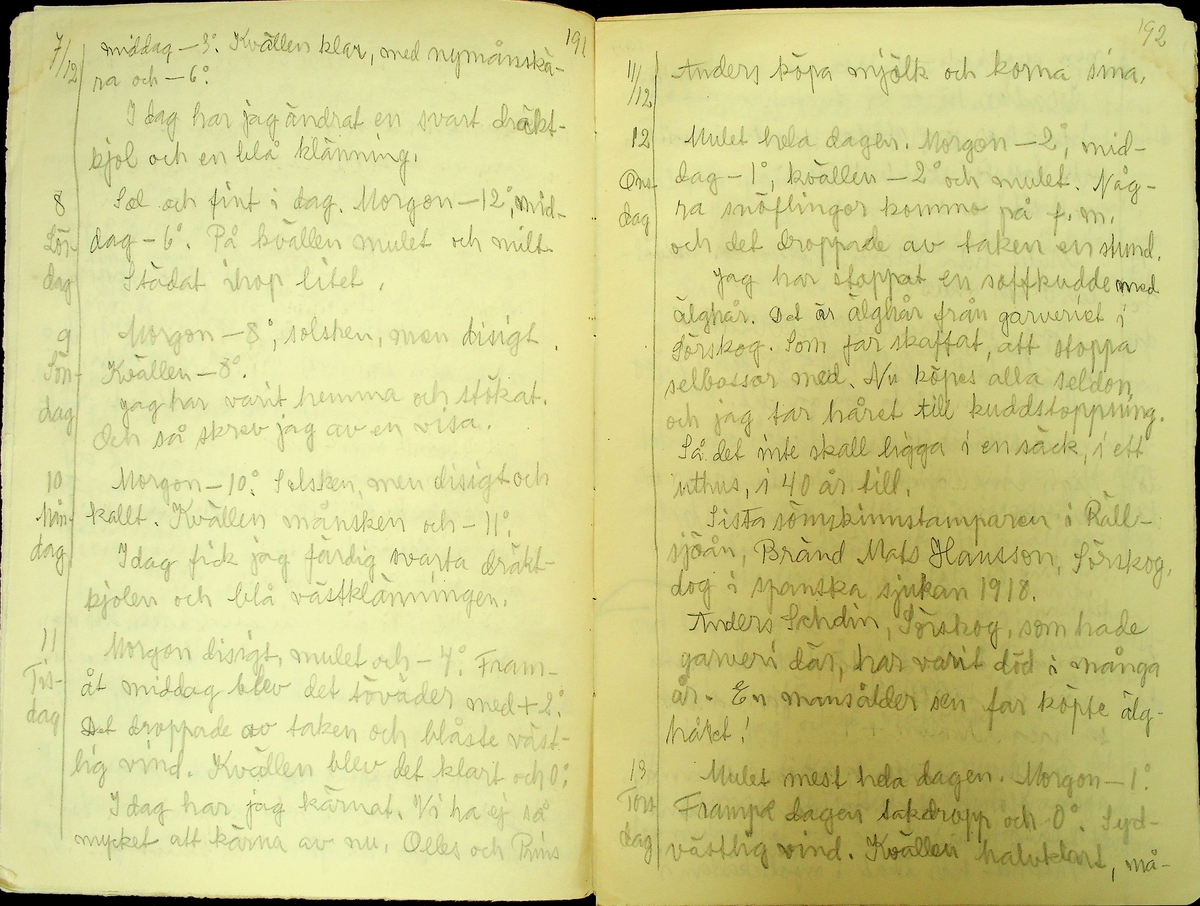 191
7/12 middag -3°. Kvällen klar, med nymånskä-
ra och -6°.
I dag har jag ändrat en svart dräkt-
kjol och en blå klänning.
8 Sol och fint i dag. Morgon -12°, mid-
Lör- dag -6°. På kvällen mulet och milt.
dag Städat ihop litet.
9 Morgon -8°, solsken, men disigt.
Sön- Kvällen -8°.
dag Jag har varit hemma och stökat.
Och så skrev jag av en visa.
10 Morgon -10°. Solsken, men disigt och
Mån- kallt. Kvällen månsken och -11°.
dag I dag fick jag färdig svarta dräkt-
kjolen och blå västklänningen.
11 Morgon disigt, mulet och -4°. Fram-
Tis- åt middag blev det töväder med +2°.
dag Det droppade av taken och blåste väst-
lig vind. Kvällen blev det klart och 0°.
I dag har jag kärnat. Vi ha ej så
mycket att kärna av nu. Olles och Prins
192
11/12 Anders köpa mjölk och korna sina.
12 Mulet hela dagen. Morgon -2°, mid-
Ons- dag -1°, kvällen -2° och mulet. Någ-
dag ra snöflingor kommo på f.m.
och det droppade av taken en stund.
Jag har stoppat en soffkudde med
älghår. Det är älghår från garveriet i
Sörskog. Som far skaffat, att stoppa
selbossor med. Nu köpes alla seldon,
och jag tar håret till kuddstoppning.
Så det inte skall ligga i en säck, i ett
uthus, i 40 år till.
Sista sämskinnstamparen i Räll-
sjöån, Bränd Mats Hansson, Sörskog,
dog i spanska sjukan 1918.
Anders Schdin, Sörskog, som hade
garveri där, har varit död i många
år. En mansålder sen far köpte älg-
håret!
13 Mulet mest hela dagen. Morgon -1°.
Tors- Frampå dagen takdropp och 0°. Syd-
dag västlig vind. Kvällen halvklart, må-